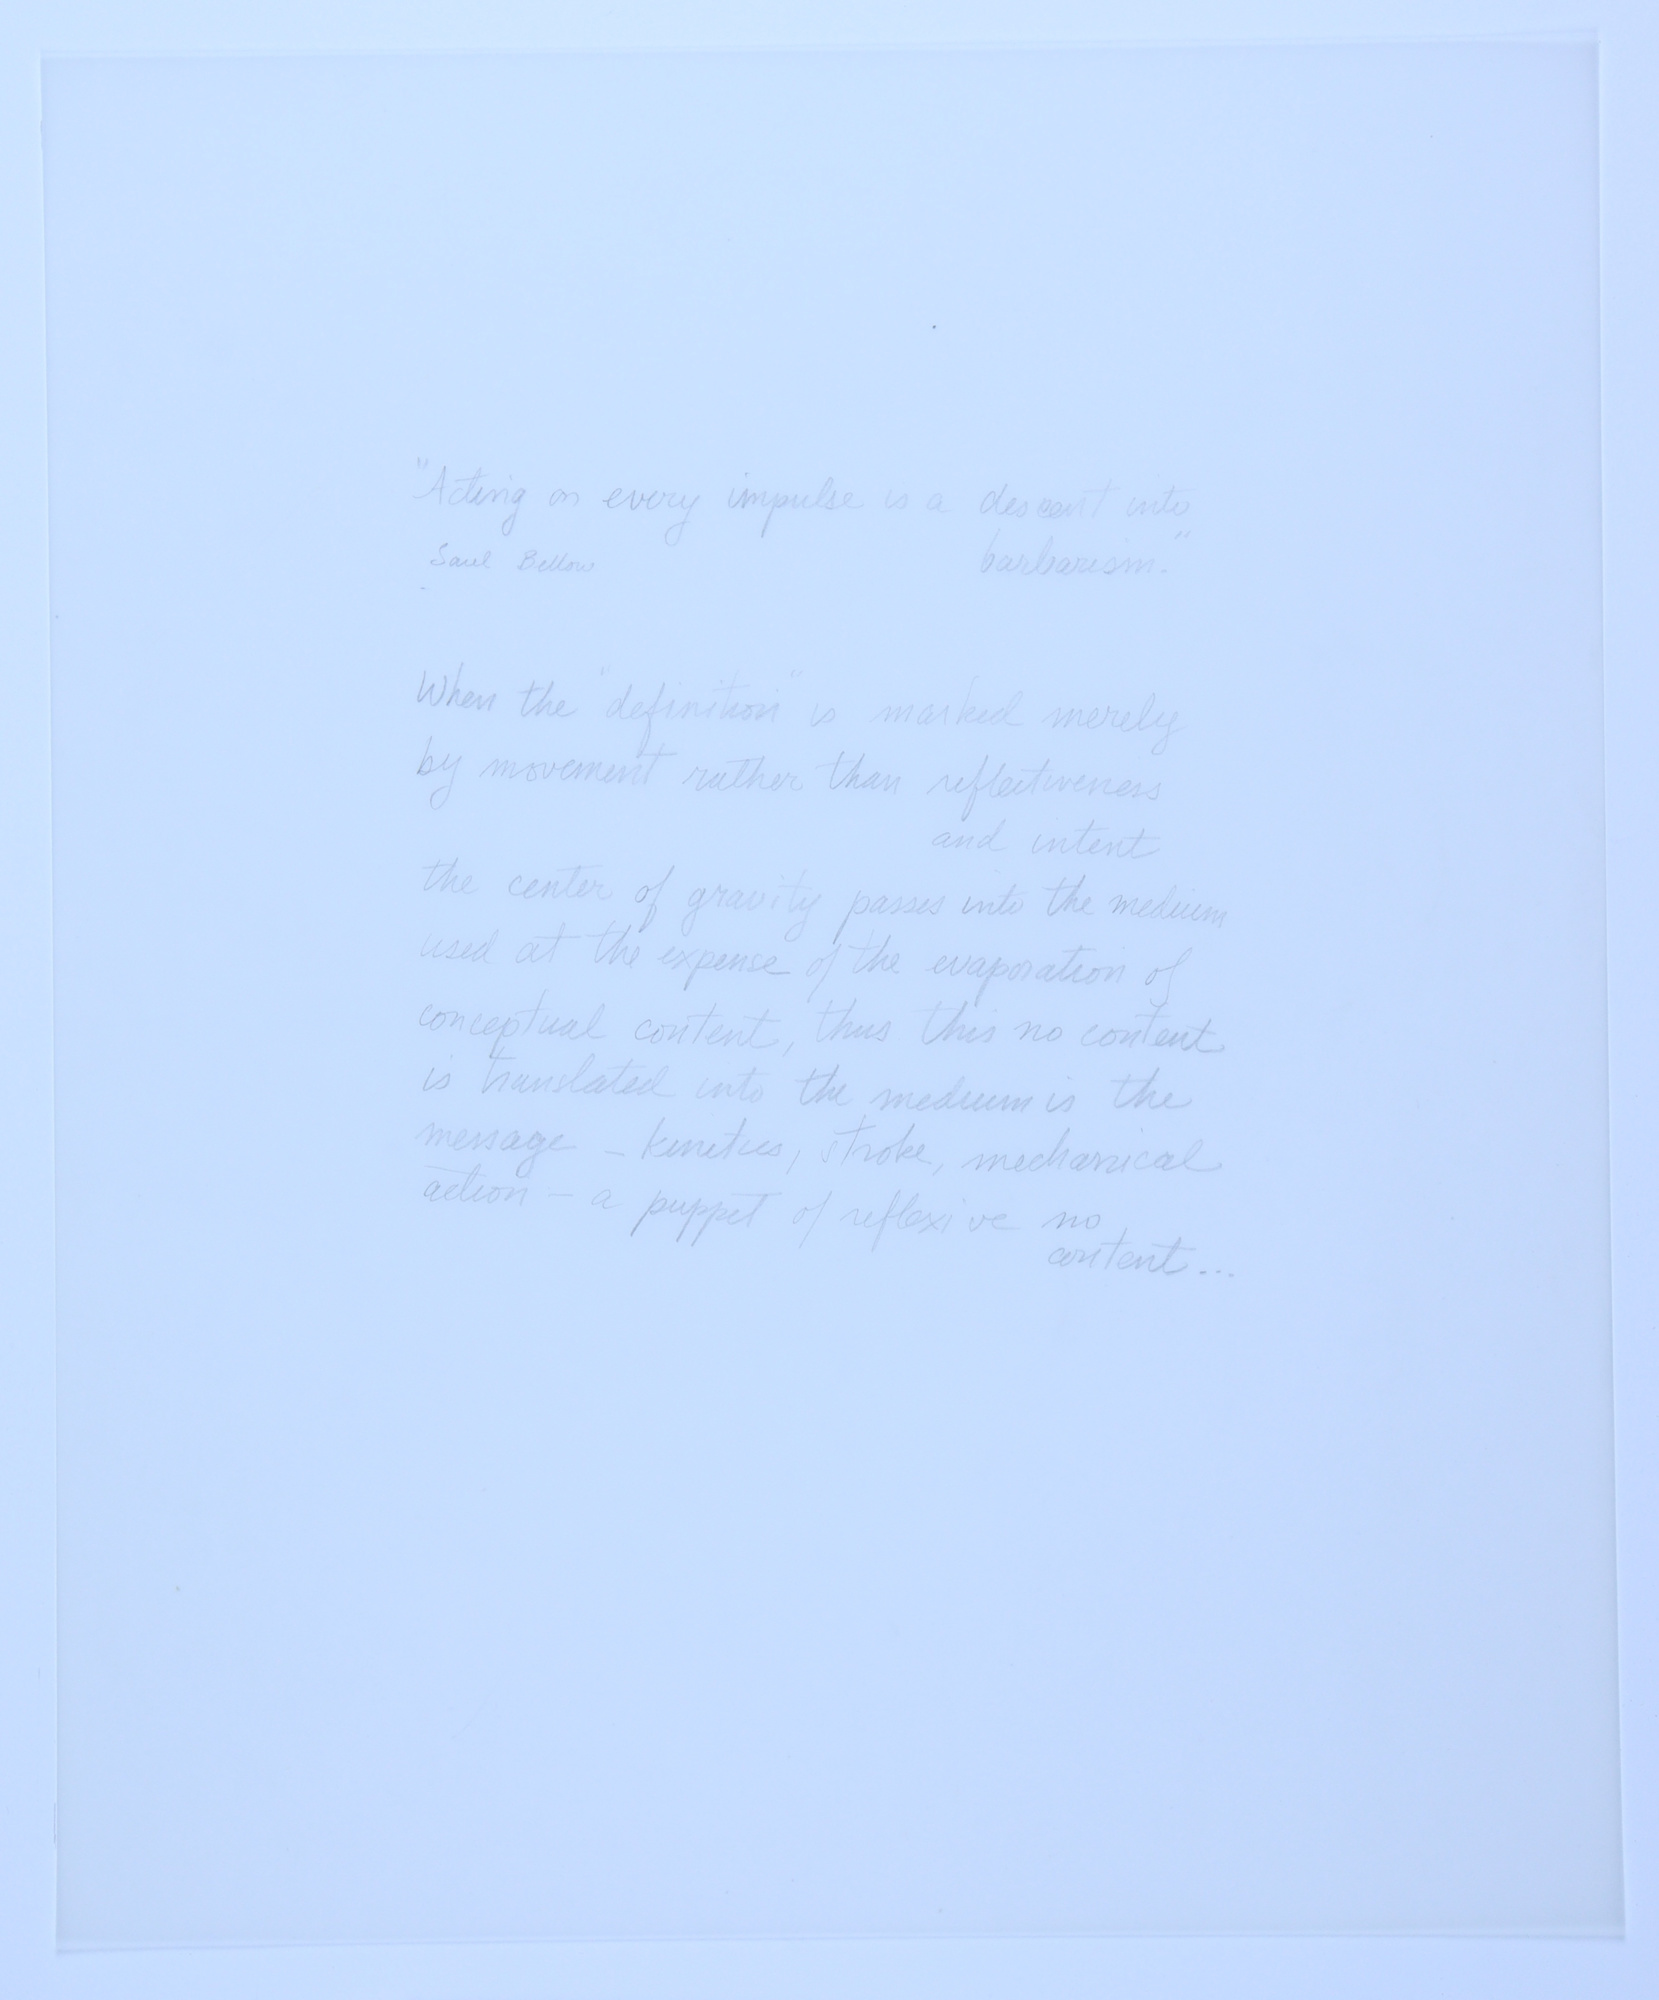 "Acting on every impulse is a descent into
barbarism."
Saul Bellow
When the "definition" is marked merely
by movement rather than reflectiveness
and intent
the center of gravity passes into the medium
used at the expense of the evaporation of
conceptual content, thus this no content
is translated into the medium is the
message - kinetics, stroke, mechanical
action - a puppet of reflexive no
content...